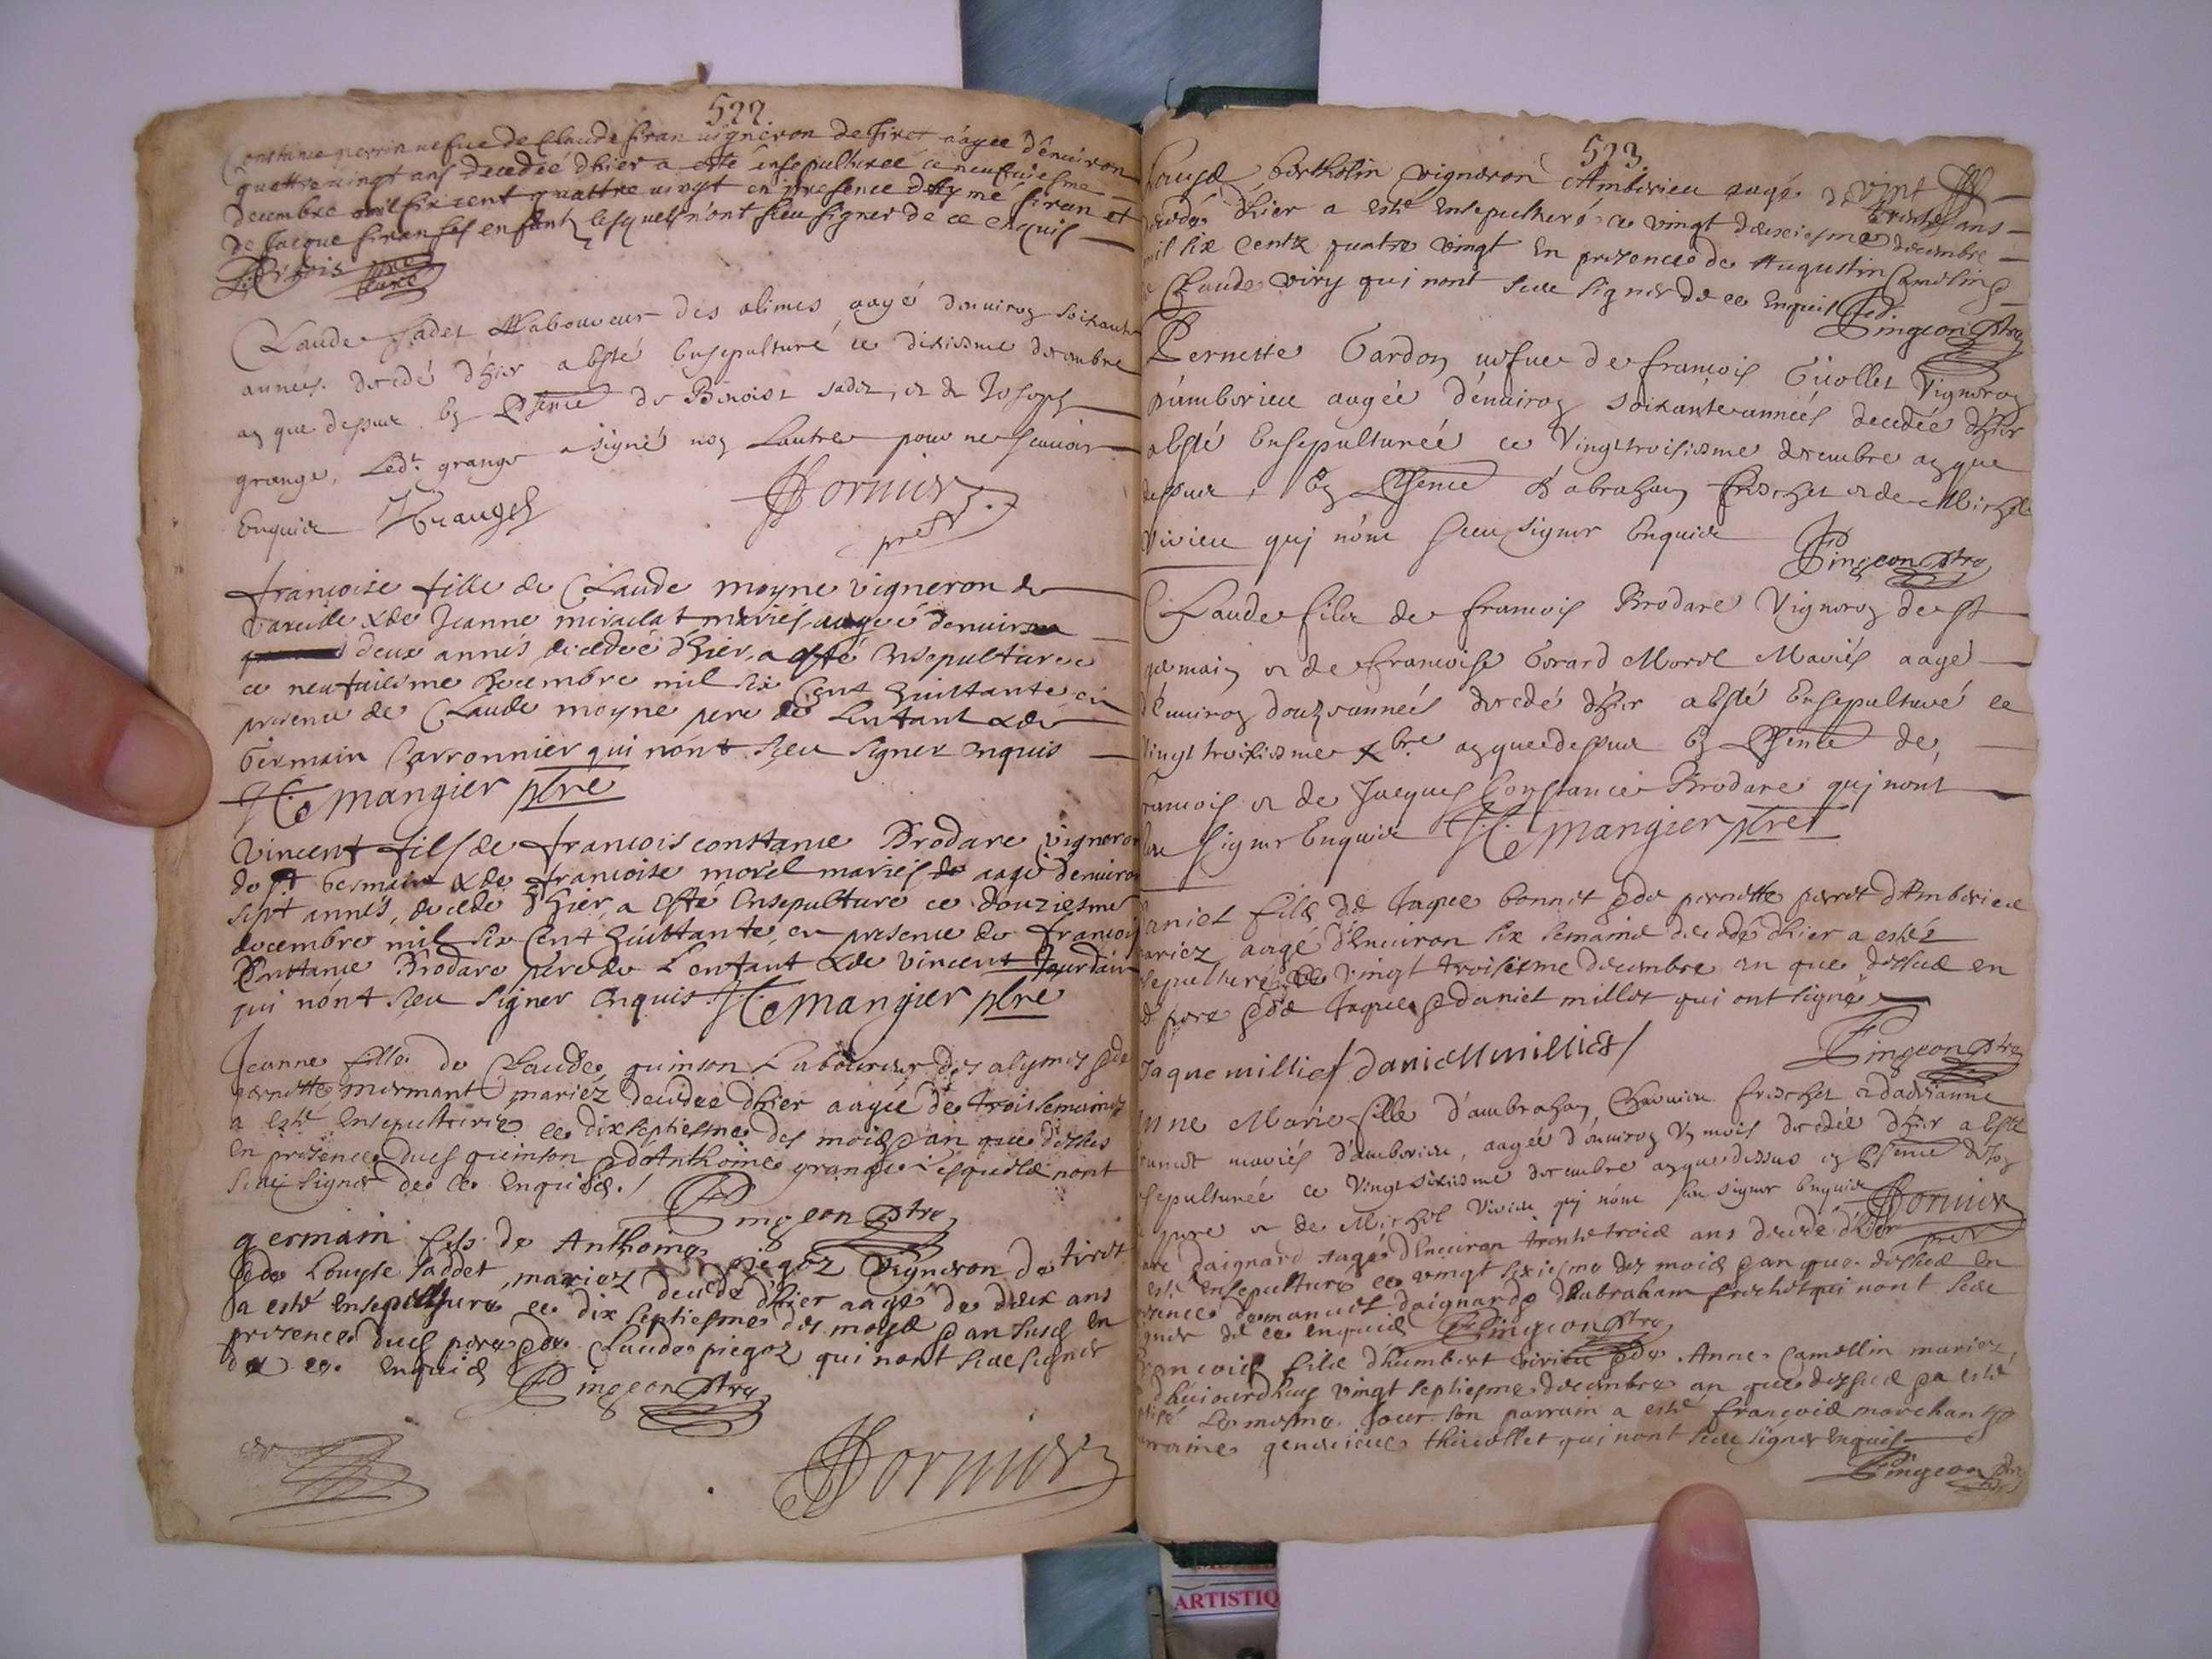 522
Constance perrin vefue de Claude firan vigneron de Tiret aagee d'enuiron
quattre vingt ans decedée d'hier a esté ensepulturee ce neufuiesme
decembre mil six cent quattre vingt en presence d'Aymé firan et
de Jacque firan ses enfantz lesquels n'ont sceu signer de ce enquis
Claude sadet laboureur des alimes aagé denuiron soixante
années decedé d'hier a esté ensepulturé ce dixiesme decembre
an que dessus en presence de Benoist sadet, et de Joseph
grange, Led. grange a signé non lautre pour ne scauoir
Enquis JGrange Hornier
pre
françoise fille de Claude moyne vigneron de
Vareille & de Jeanne miraclat mariés, aagée denuiron
deux annés decedée d'hier, a esté ensepulturee
ce neufuiesme decembre mil six Cent huittante en
presence de Claude moyne pere de Lenfant & de
Germain Carronnier qui n'ont sceu signer enquis
Mangier pbre
Vincent fils de francois constance Brodare vigneron
de st Germain & de francoise morel mariés aagé denuiron
sept annés, decedé d'hier, a esté ensepulturé ce douziesme
decembre mil six Cent huittante, en presence de francois
Constance Brodare pere de L'enfant & de vincent Jourdain
qui n'ont sceu signer enquis. Mangier pbre
Jeanne fille de Claude quinson Laboureur des alymes & de
pernette mermant mariez decedée d'hier aagée de trois semaines
a esté ensepulturée ce dixseptiesme des mois & an que dessus
en presence dud quinson & d'Anthoine grange lesquels nont
sceu signer de ce enquis. / Pingeon ptre
germain fils de Anthoine piegoz Vigneron de tiret
& de Louyse saddet mariez decedé d'hier aagé de deux ans
a esté ensepulturé ce dix septiesme des moys & an susd en
presence dud pere & de Claude piegoz qui nont sceu signer
de ce enquis Pingeon ptre
Hornier
523
bertholin vigneron d'Amberieu aagé de vint
trente ans
decedé d'hier a esté ensepulturé ce vingt deuxiesme decembre
mil six cents quatre vingt en presence de Augustin Camelin &
de Claude viry qui nont sceu signer de ce enquis
Pingeon ptre
Pernette Gardon vefue de francois Guollet Vigneron
d'amberieu aagée d'enuiron soixante années decedée d'hier
a esté Ensepulturée ce Vingt troisiesme decembre an que
dessus, En presence d'abraham frechet et de Michel
Vivieu qui n'ont sceu signer Enquis
Pingeon ptre
Claude fils de francois Brodare Vigneron de st
germain et de francoise Morel Mariés aagé
d'enuiron douze années decedé d'hier a esté Ensepulturé ce
vingt troisiesme Xbre an que dessus En presence de,
francois et de Jacques Constance Brodare qui nont
sceu signer Enquis Mangier pbre
Daniel fils de Jaque bonnet & de pernette perret d'Amberieu
mariez aagé d'Enuiron six semaine decedé d'hier a esté
sepulturé ce vingt troisiesme decembre an que dessus en
pere & de Jaques & daniel millet qui ont signé
Jaque milliet daniell milliet / Pingeon ptre
Anne Marie fille d'ambrahan Charuieu frechet et d'adrianne
mariés d'amberieu, aagée d'enuiron un mois decedée d'hier a esté
sepulturée ce Vingt sixiesme decembre an que dessus en presence de son
pere et de Michel Vivieu qui n'ont sceu signer Enquis Hornier
pre
daignard aagé d'Enuiron trente trois ans decedé d'hier
esté ensepulturé ce vingt sixiesme des mois & an que dessus en
presence de manuel daignard & d'abraham frechet qui nont sceu
signer de ce enquis Pingeon ptre
francois fils d'humbert vivieu & de Anne Camellin mariez,
d'huiourdhuy vingt septiesme decembre an que dessus & a esté
le mesme Jour son parrain a esté francois marchant &
marraine geneuieue thicollet qui nont sceu signer Enquis
Pingeon ptre
ARTISTIQ